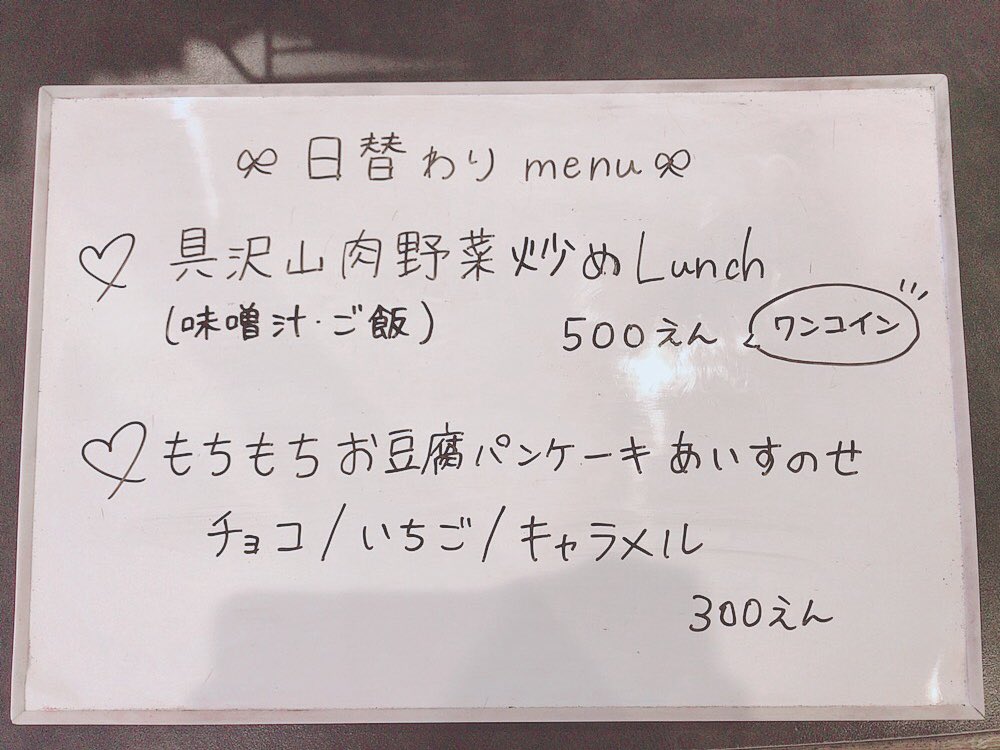 日替わりmenu
具沢山肉野菜炒めLunch
(味噌汁・ご飯)
500えん ワンコイン
もちもちお豆腐パンケーキあいすのせ
チョコ/いちご/キャラメル
300えん